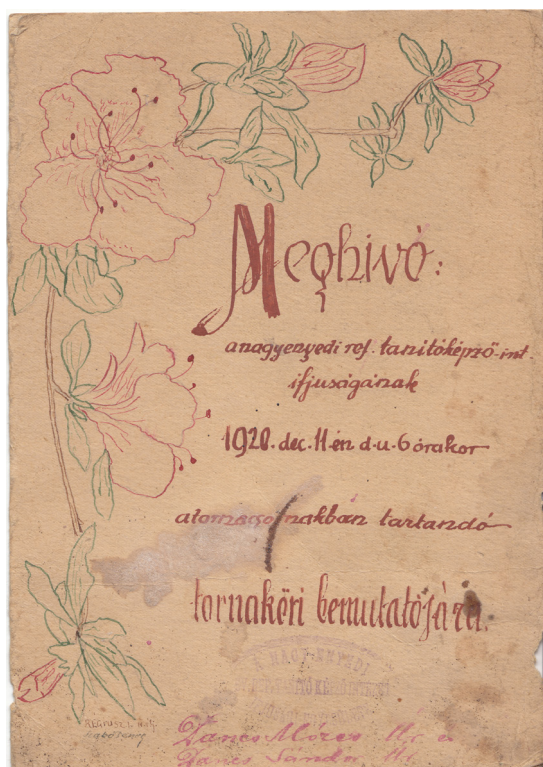 Meghivó:
a nagyenyedi ref. tanitóképző-int.
ifjuságának
1920. dec. 11-én d-u-6 órakor
a tornacsarnakbán tartandó
tornaköri bemutatójára.
NAGY-ENYEDI